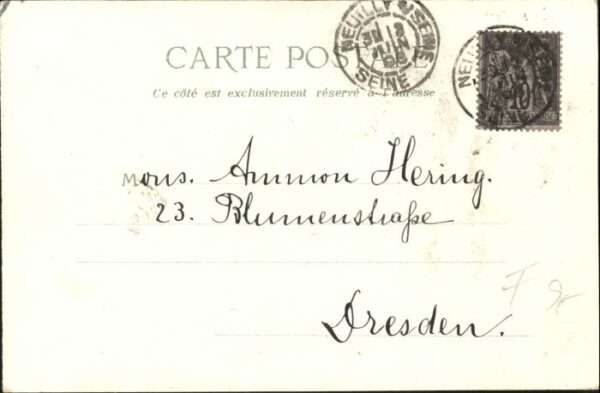 CARTE POSTALE
NEUILLY S/ SEINE
SEINE
NEUILLY
Ce côté est exclusivement réservé à l'adresse
Mons. Ammon Hering.
23. Blumenstraße
Dresden.